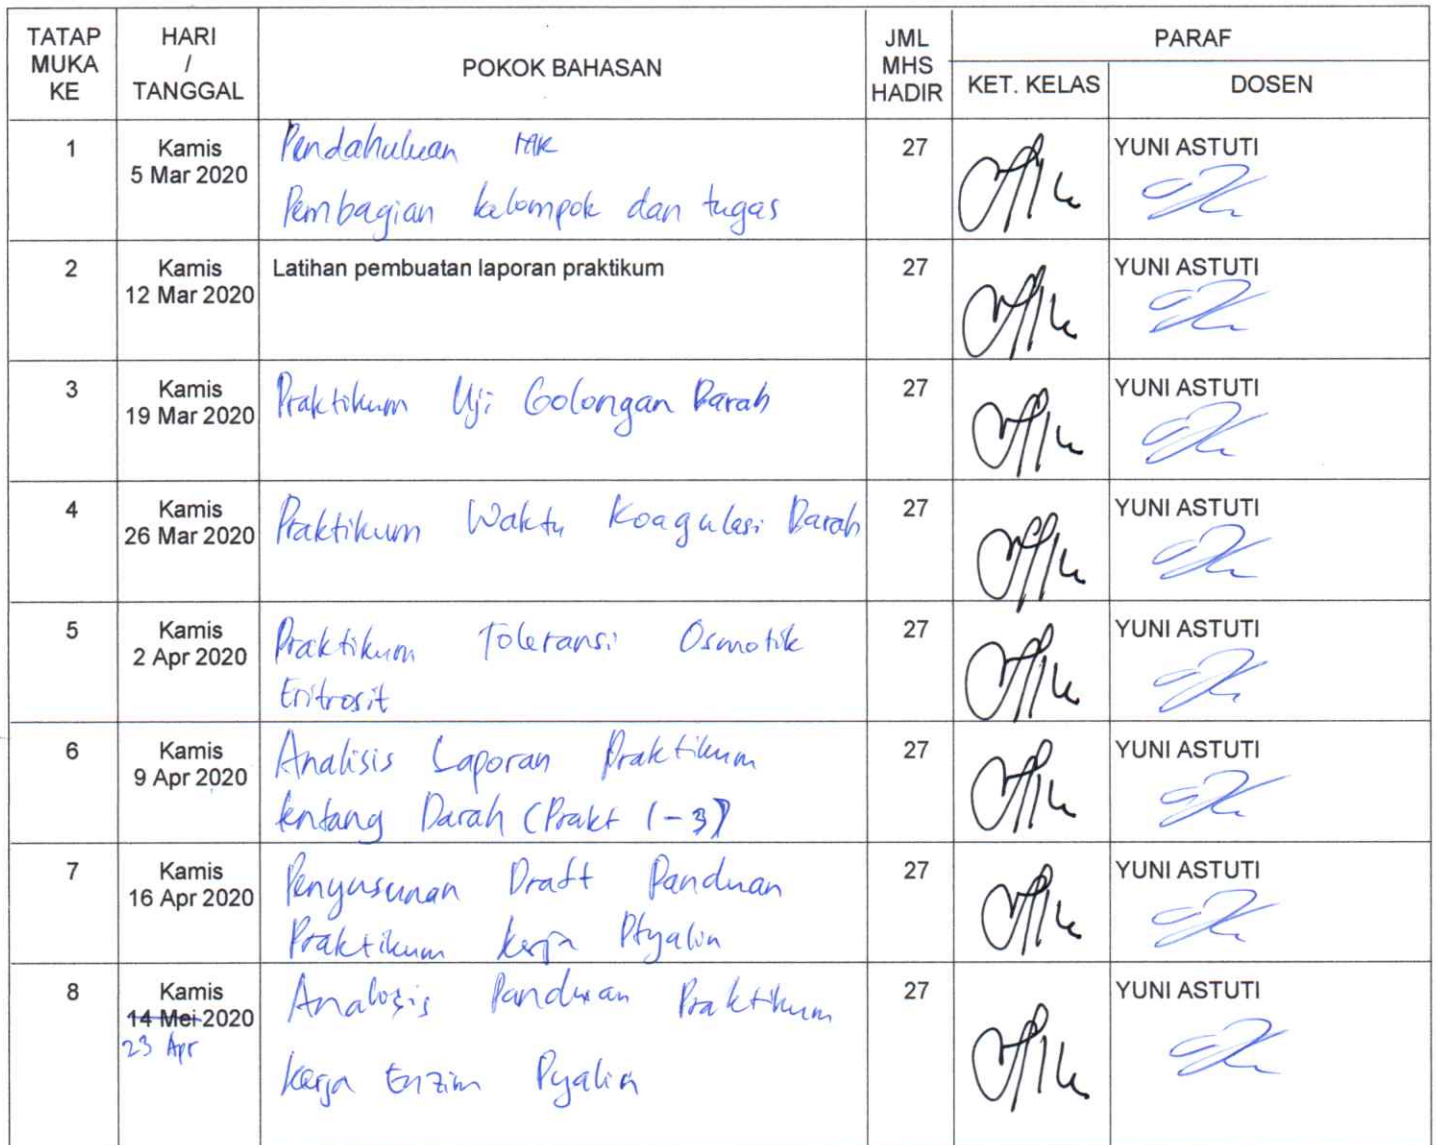 TATAP MUKA KE
HARI / TANGGAL
POKOK BAHASAN
JML MHS HADIR
PARAF
KET. KELAS
DOSEN
1
Kamis
5 Mar 2020
Pendahuluan
Pembagian kelompok dan tugas
27
YUNI ASTUTI
2
Kamis
12 Mar 2020
Latihan pembuatan laporan praktikum
27
YUNI ASTUTI
3
Kamis
19 Mar 2020
Praktikum Uji Golongan Darah
27
YUNI ASTUTI
4
Kamis
26 Mar 2020
Praktikum Waktu Koagulasi Darah
27
YUNI ASTUTI
5
Kamis
2 Apr 2020
Praktikum Toleransi Osmotik
Eritrosit
27
YUNI ASTUTI
6
Kamis
9 Apr 2020
Analisis Laporan Praktikum
tentang Darah (Prakt 1-3)
27
YUNI ASTUTI
7
Kamis
16 Apr 2020
Penyusunan Draft Panduan
Praktikum kerja Ptyalin
27
YUNI ASTUTI
8
Kamis
14 Mei 2020
23 Apr
Analisis Panduan Praktikum
kerja Enzim Pyalin
27
YUNI ASTUTI